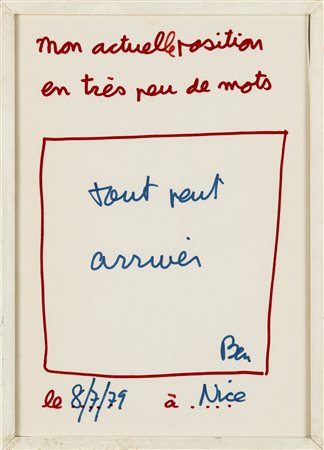 Mon actuelle position
en très peu de mots
tout peut
arriver
Ben
le 8/7/79 à Nice